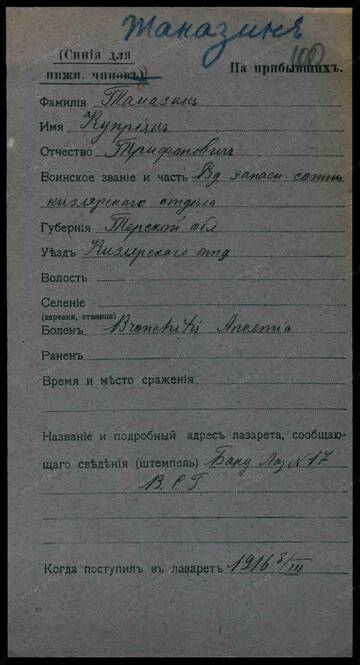 Таназинъ
100
(Синія для
нижн. чиновъ)
На прибывшихъ.
Фамилія Таназинъ
Имя Купріянъ
Отчество Трифоновичъ
Воинское званіе и часть запасн. сотни
кизлярскаго отдѣла
Губернія Терской обл
Уѣздъ Кизлярскаго отд
Волость
Селеніе
(деревня, станица)
Боленъ Bronchitis Anaemia
Раненъ
Время и мѣсто сраженія
Названіе и подробный адресъ лазарета, сообщаю-
щаго свѣдѣнія (штемпель) Баку Лаз N 17
В. С. Г.
Когда поступилъ въ лазаретъ 1916 5/III